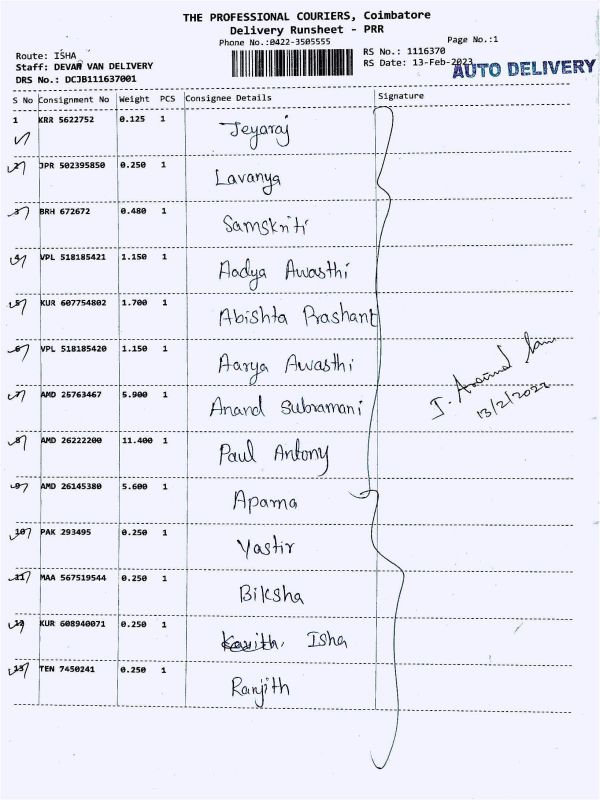 THE PROFESSIONAL COURIERS, Coimbatore
Delivery Runsheet - PRR
Phone No.:0422-3505555
Page No.:1
Route: ISHA
RS No.: 1116370
Staff: DEVAN VAN DELIVERY
RS Date: 13-Feb-2023
AUTO DELIVERY
DRS No.: DCJB111637001
S No Consignment No Weight PCS Consignee Details Signature
1 KRR 5622752 0.125 1 Jeyaraj
2 JPR 502395850 0.250 1 Lavanya
3 BRH 672672 0.480 1 Samskriti
4 VPL 518185421 1.150 1 Aadya Awasthi
5 KUR 607754802 1.700 1 Abishta Prashant
6 VPL 518185420 1.150 1 Aarya Awasthi
7 AMD 25763467 5.900 1 Anand Subramani
8 AMD 26222200 11.400 1 Paul Antony
9 AMD 26145380 5.600 1 Aparna
10 PAK 293495 0.250 1 Yastir
11 MAA 567519544 0.250 1 Biksha
12 KUR 608940071 0.250 1 Isha
13 TEN 7450241 0.250 1 Ranjith
13/2/2022